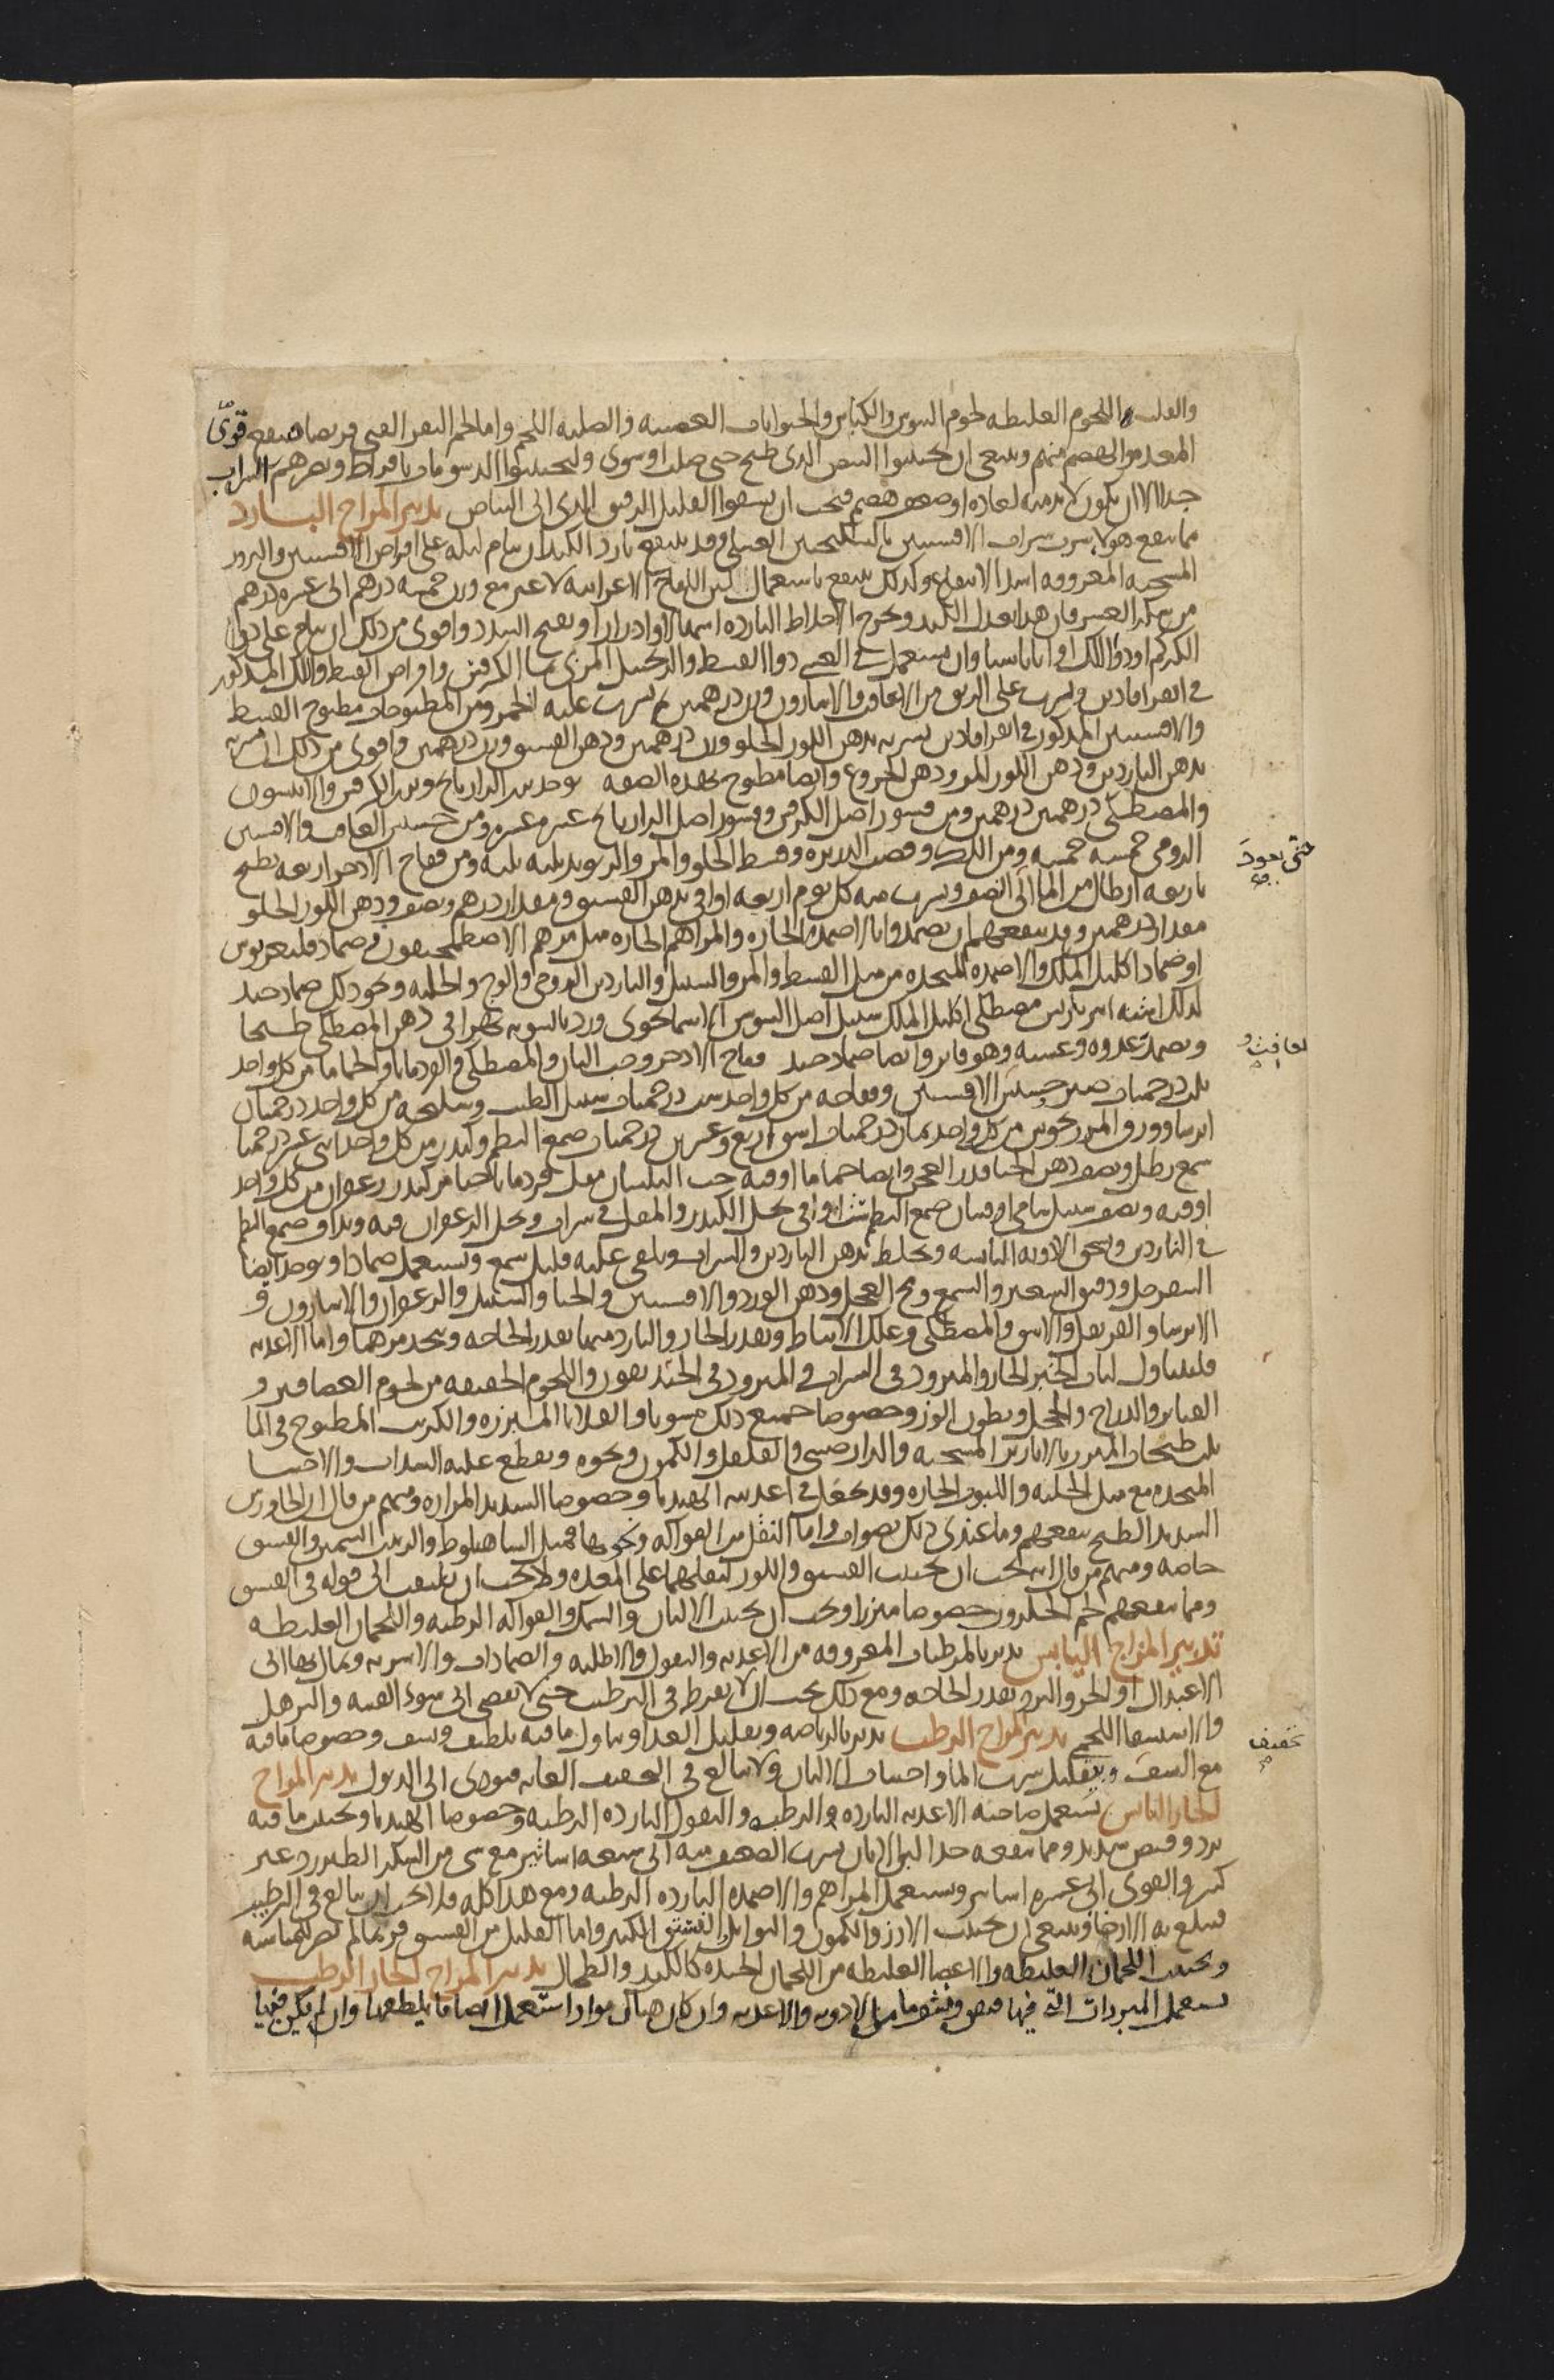 والقلب واللحوم الغليظة لحوم التيوس والكباش والحيوانات العصبية والصلبة اللحم واما لحم البقر الفتي فربما منفعه قوى
المعدة والهضم منهم وينبغي ان يجتنبوا البيض الذي طبخ حتى صلب او شوي وليجتنبوا الدسومات بافراط ويضرهم الشراب
جدا الا ان يكون لا بد منه لعادة او ضعف هضم فيجب ان يسقوا القليل الرقيق الذي الى البياض تدبير المزاج البارد
مما ينفع هولا شرب شراب الافسنتين بالسكنجبين العسلي وقد ينتفع بارد الكبد ان ينام ليله على اقراص الافسنتين والبزور
المسخنة المعروفة اشد الانتفاع وكذلك ينتفع باستعمال لبن اللقاح الاعرابية لا غير مع وزن خمسة درهم الى عشرة درهم
من سكر العشر فان هذا يعدل الكبد ويخرج الاخلاط الباردة اسهالا وادرارا ويفتح السدد واقوى من ذلك ان ينام على دوا
الكركم او دوا اللك او اناناسيا وان يستعمل دوا القسط والزنجبيل المربى بما الكرفس واقراص القسط واللك المذكور
في القراباذين ويشرب على الريق من الغافت والاسارون وزن درهمين ثم يشرب عليه الخمر ومن المطبوخات مطبوخ القسط
والافسنتين المذكور في القراباذين يشربه بدهن اللوز الحلو وزن درهمين ودهن الفستق وزن درهمين واقوى من ذلك ان يشربه
بدهن الناردين ودهن اللوز المر ودهن الخروع وايضا مطبوخ بهذه الصفة يوخذ بزر الرازيانج وبزر الكرفس والانيسون
والمصطكى درهمين درهمين ومن قشور اصل الكرفس وقشور اصل الرازيانج عشرة عشرة ومن حشيش الغافت والافسنتين
الرومي خمسة خمسة ومن اللك وقصب الذريرة وقسط الحلو والمر والريوند ثلثة ثلثة ومن فقاح الاذخر اربعة يطبخ
باربعة ارطال من الما الى النصف ويشرب منه كل يوم اربعة اواق بدهن الفستق مقدار درهم ونصف ودهن اللوز الحلو
مقدار درهمين وقد ينفعهم ان يضمدوا بالاضمدة الحارة والمراهم الحارة مثل مرهم الاصطمخيقون ضماد فيلغريوس
او ضماد اكليل الملك والاضمدة المتخذة من مثل القسط والمر والسنبل والناردين الرومي والوج والحلبة ونحو ذلك ضماد جيد
لذلك اشنه امبرباريس مصطكى اكليل الملك سنبل اصل السوسن الاسمانجوني ورد بالسوية يهرا في دهن المصطكى طبخا
ويضمد غدوه وعشيه وهو فاتر وايضا ضماد جيد فقاح الاذخر وحب البان والمصطكى والقردمانا والحماما من كل واحد
ثلث درخميات صبر حشيش الافسنتين وفقاحه من كل واحد ست درخميات سنبل الطيب وسليخه من كل واحد درخميان
ايرسا وورق المرزنجوش من كل واحد ثمان درخميات اشق اربع وعشرين درخميات صمغ البطم وكندر من كل واحد اثني عشر درخميا
شمع رطل ونصف دهن الحنا قدر العجن وايضا حماما اوقية حب البلسان مقل قردمانا الحنا مر كندر زعفران من كل واحد
اوقية ونصف سنبل شامي اوقيتان صمغ البطم ست اواق يحل الكندر والمقل في شراب ويحل الزعفران فيه ويداف صمغ البطم
في الناردين ويسحق الادوية اليابسة ويخلط بدهن الناردين والشراب ويلقى عليه قليل شمع ويستعمل ضمادا ويوخذ ايضا
السفرجل ودقيق الشعير والشمع ومخ العجل ودهن الورد والافسنتين والحنا والسنبل والزعفران والاسارون و
الايرسا والقرنفل والاشق والمصطكى وعلك الانباط ويقدر الحار والبارد منها بقدر الحاجة ويتخذ مرهما واما الاغذية
فليتناول لباب الخبز الحار والمثرود في الشراب والمثرود في الخنديقون واللحوم الخفيفة من لحوم العصافير و
القنابر والدراج والحجل وبطون الوز وخصوصا جميع ذلك مشويا والقلايا المبزرة والكرنب المطبوخ في الما
ثلث طبخات المبزر بالابازير المسخنة والدارصيني والفلفل والكمون ونحوه ويقطع عليه السذاب والاحسا
المتخذة مع مثل الحلبة واللبوب الحارة وقد جعل في اغذيته الهندبا وخصوصا الشديد المرارة ومنهم من قال ان الجاورس
الشديد الطبخ ينفعهم وما عندي ذلك بصواب واما النقل من الفواكه ونحوها فمثل الشاهبلوط والزبيب السمين والفستق
خاصة ومنهم من قال انه يجب ان يجتنب الفستق واللوز لثقلهما على المعدة ولا يجب ان يلتفت الى قوله في الفستق
ومما ينفعهم لحم الحلزون خصوصا مبزرا ويجب ان يجتنب الالبان والسمك والفواكه الرطبة واللحمان الغليظة
تدبير المزاج اليابس يدبر بالمرطبات المعروفة من الاغذية والبقول والاطلية والضمادات والاشربة ويمال بها الى
الاعتدال او الحر والبرد بقدر الحاجة ومع ذلك يجب ان لا يفرط في الترطيب حتى لا يفضي الى سوء القنية والترهل
والاستسقا اللحمي تدبير المزاج الرطب يدبر بالرياضة وبتقليل الغذا وتناول ما فيه تلطيف ونشف وخصوصا ما فيه
مع النشف وبتقليل شرب الما واجتناب الالبان ولا يبالغ في التجفيف الغاية فيودي الى الذبول تدبير المزاج
الحار اليابس يستعمل صاحبه الاغذية الباردة والرطبة والبقول الباردة الرطبة وخصوصا الهندبا ويجتنب ما فيه
برد وقبض شديد ومما ينفعه جدا لبن الاتان يشرب الضعيف منه الى سبعة اساتير مع شي من السكر الطبرزد غير
كثير والقوي الى عشرة اساتير ويستعمل المراهم والاضمدة الباردة الرطبة ومع هذا كله فلا يجب ان يبالغ في الترطيب
فيبلغ به الارخا وينبغي ان يجتنب الارز والكمون والتوابل الفستق الكثير واما القليل من الفستق فربما لم يضر لمناسبه
ويجتنب اللحمان الغليظة والاعضا الغليظة من اللحمان الجيدة كالكبد والطحال تدبير المزاج الحار الرطب
يستعمل المبردات التي فيها قبض ونشف ما من الادوية والاغذية وان كان هناك مواد استعمل ايضا ما يلطفها وان لم يكن فيها
حتى يعود
لغافت و
تجفيف